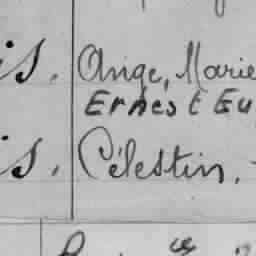 is. Ange, Marie
Ernest Eu
is. Célestin,